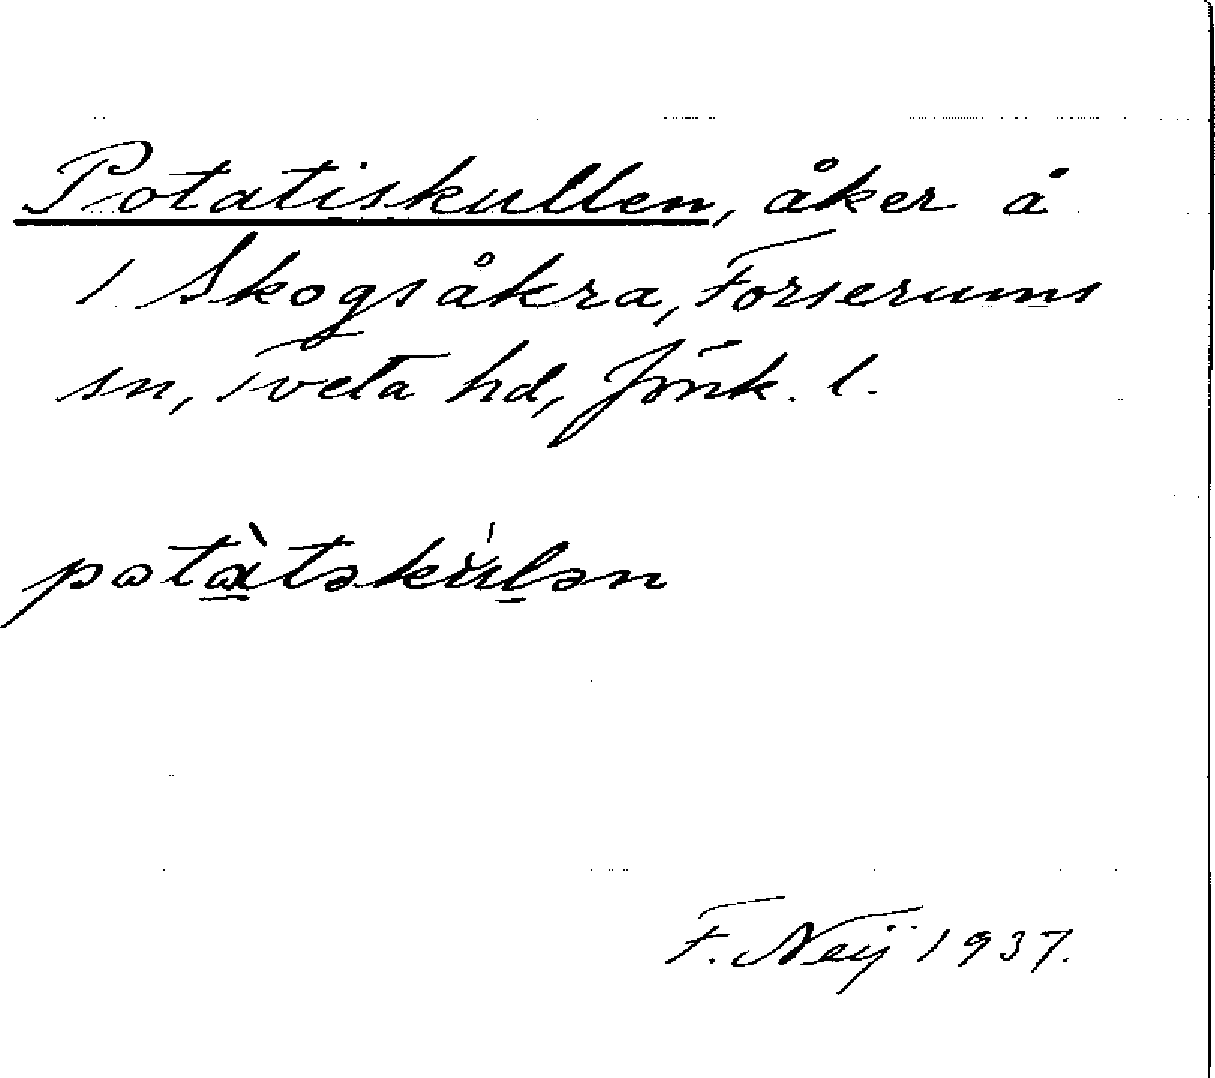 Potatiskullen, åker å
1 Skogsåkra, Forserums
sn, Tveta hd, Jönk. l.
pətàtəskúlən
F. Neij 1937.